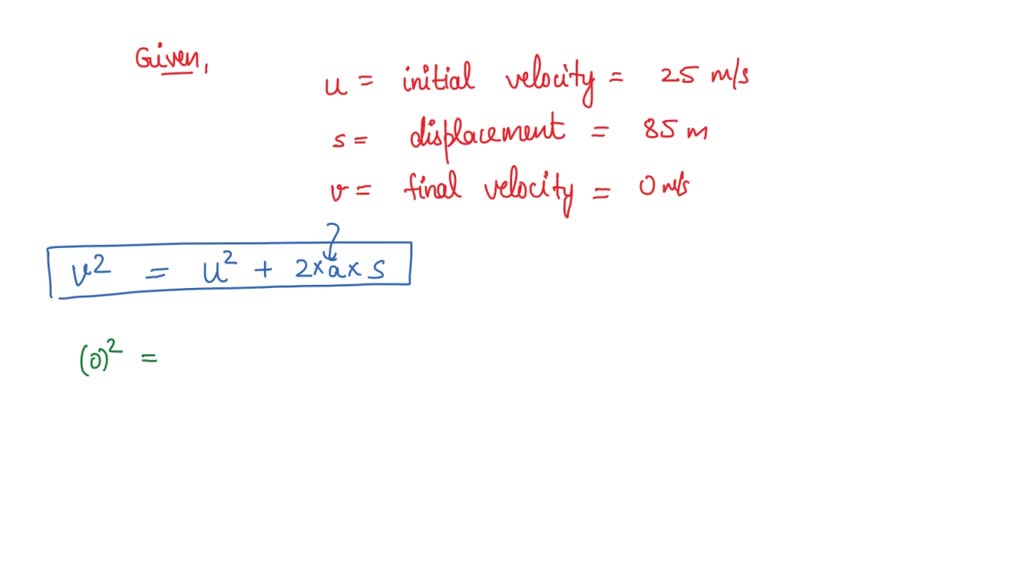 Given,
u = initial velocity = 25 m/s
s = displacement = 85 m
v = final velocity = 0 m/s
?
v² = u² + 2×a×s
(0)² =